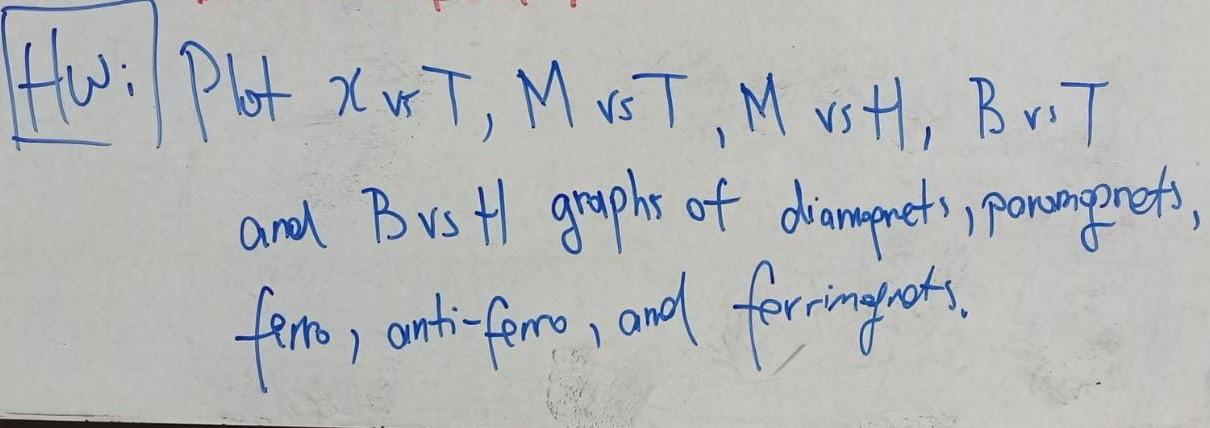 HW: Plot χ vs T, M vs T, M vs H, B vs T
and B vs H graphs of diamagnets, paramagnets,
ferro, anti-ferro, and ferrimagnets.